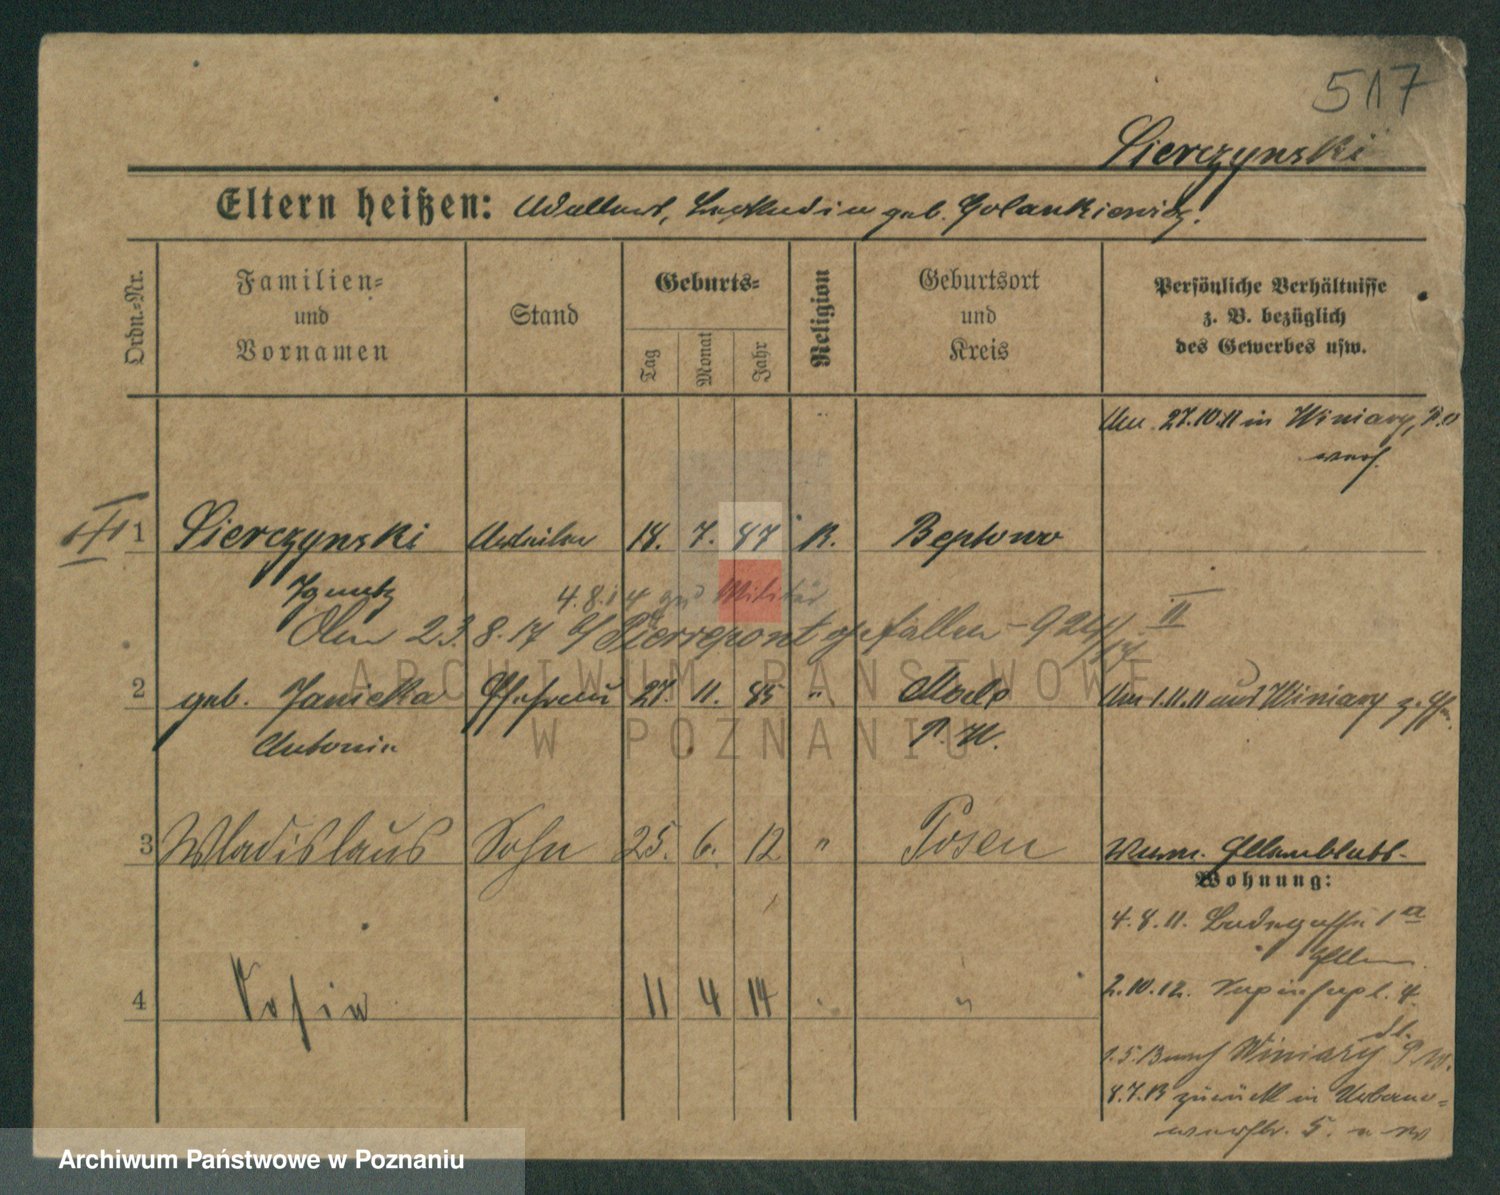 517
Sierczynski
Eltern heißen: Adalbert, geb. Golankiewicz.
Ordn.-Nr.
Familien-
und
Vornamen
Stand
Geburts-
Tag
Monat
Jahr
Religion
Geburtsort
und
Kreis
Persönliche Verhältnisse
z. B. bezüglich
des Gewerbes usw.
27.10.11 in Winiary, P.O
verh.
1 Sierczynski Arbeiter 18. 7. 87 K. Beptowo
Ignatz
4.8.14 zum Militär
Am 23.8.17 b/Pierrepont gefallen - 924/17 II
2 geb. Janicka Ehefrau 27. 11. 85 " P. W.
Am 1.11.11 aus Winiary z. Ehm.
Antonie
3 Wladislaus Sohn 25. 6. 12 " Posen
Wohnung:
4.8.11. 1a
4 Sofie 11 4 14 " "
2.10.12. 4.
1.5.13 nach Winiary P.W.
8.7.13 zurück in
5.
ARCHIWUM PAŃSTWOWE
W POZNANIU
Archiwum Państwowe w Poznaniu